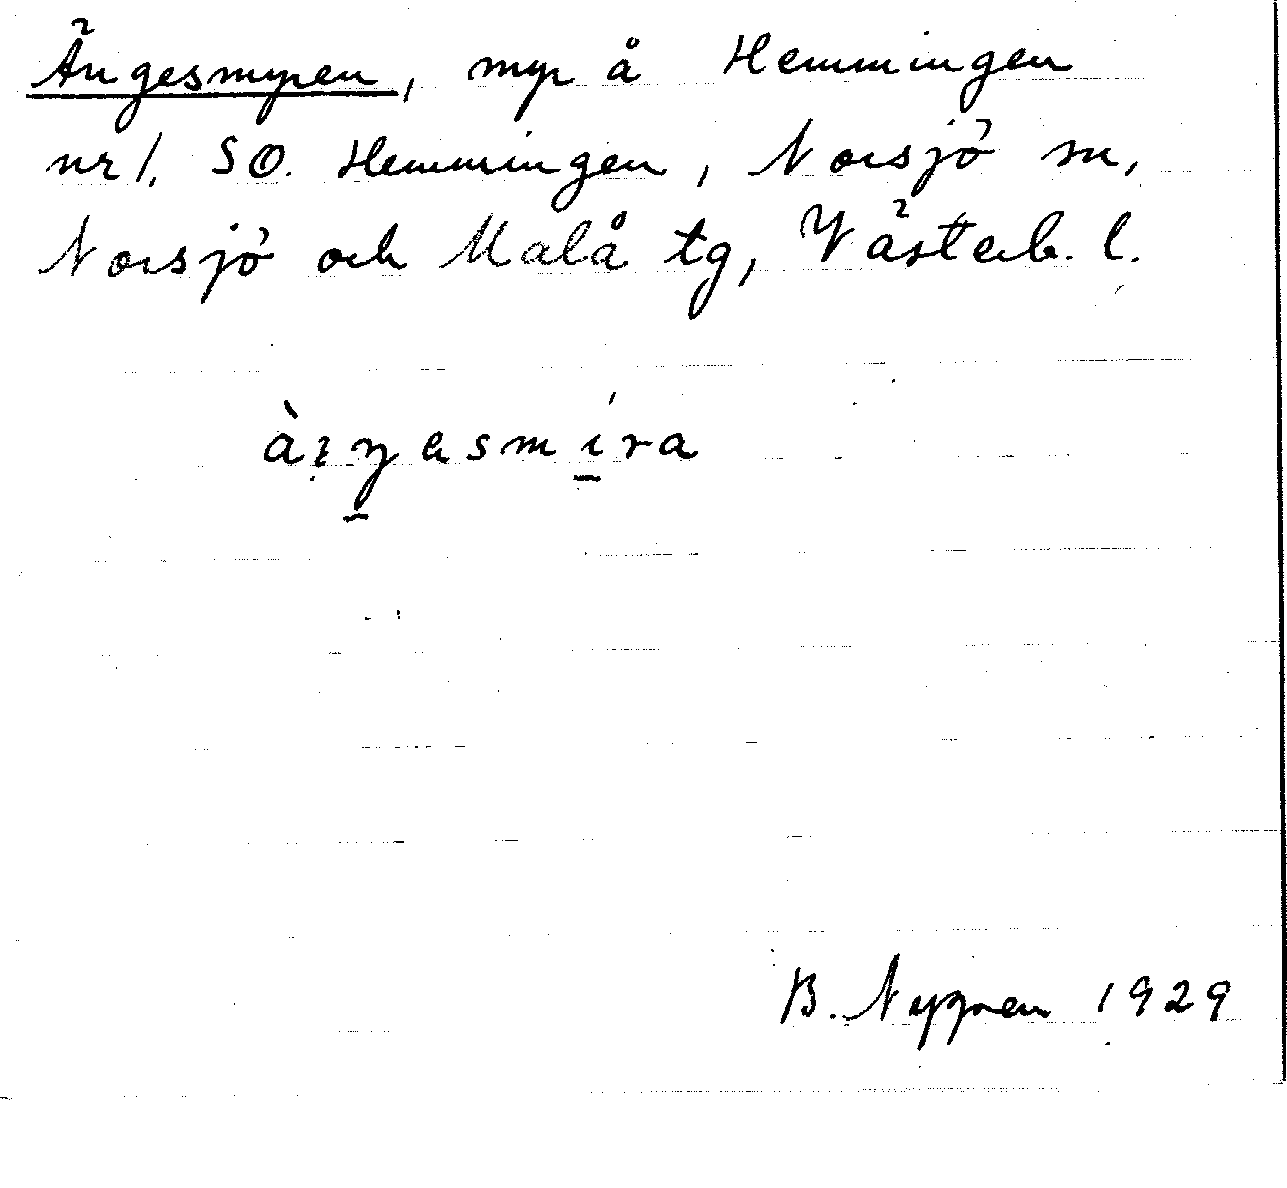 Ängesmyren, myr å Hemmingen
nr 1. SO. Hemmingen, Norsjö sn,
Norsjö och Malå tg, Västerb. l.
B. Nygren 1929